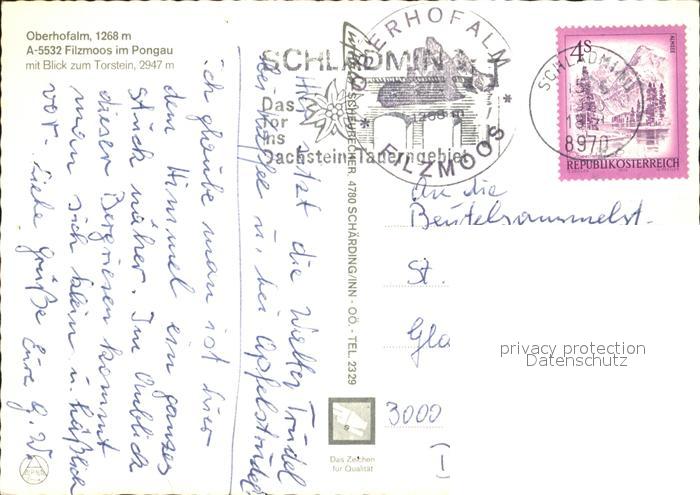 Oberhofalm, 1268 m
A-5532 Filzmoos im Pongau
mit Blick zum Torstein, 2947 m
SCHLADMING
Das
Tor
ins
Dachstein-Tauerngebiet
OBERHOFALM
1268 m
* FILZMOOS *
SCHLADMING
8970
4 S
ALMSEE
REPUBLIK ÖSTERREICH
4780 SCHÄRDING/INN - OÖ. - TEL. 2329
Hier sitzt die Walter Trudel
bei Kaffee u. bei Apfelstrudel
ich glaube man ist hier
dem Himmel ein ganzes
Stück näher. Im Anblick
dieser Bergriesen kommt
man sich klein u. häßlich
vor. Liebe Grüße Eure G. W.
An die
Beutelsammelst.
St.
Gla
3000
privacy protection
Datenschutz
Das Zeichen
für Qualität